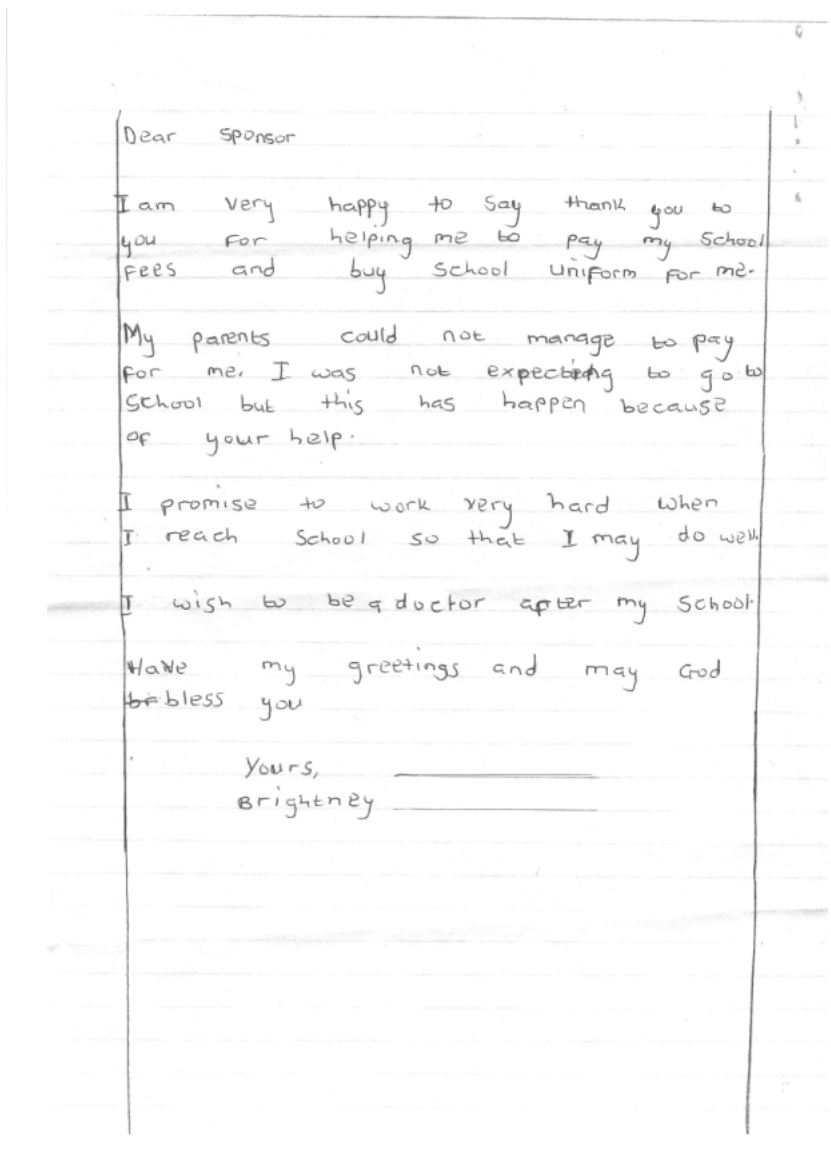 Dear Sponsor
I am very happy to say thank you to
you for helping me to pay my School
fees and buy school uniform for me.
My parents could not manage to pay
for me. I was not expecting to go to
School but this has happen because
of your help.
I promise to work very hard when
I reach School so that I may do well.
I wish to be a doctor after my School.
Have my greetings and may God
br bless you
Yours,
Brightney